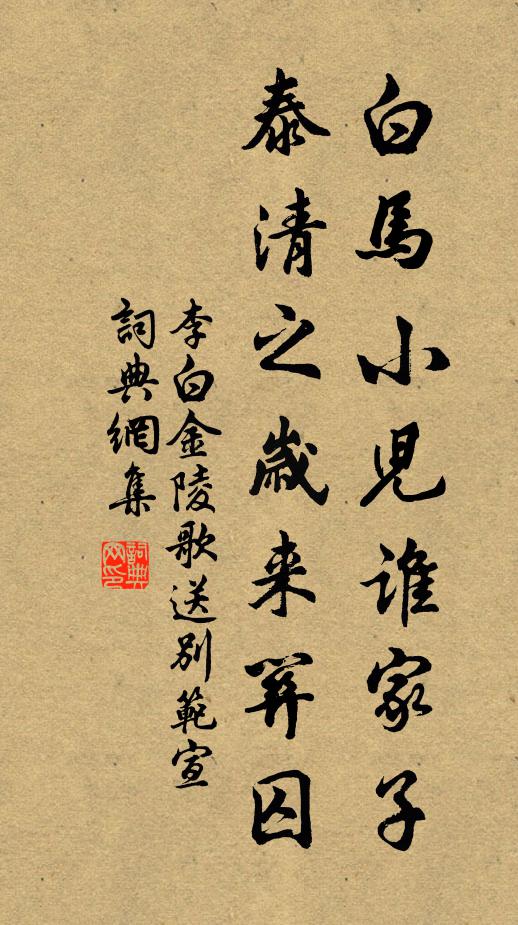 白馬小兒誰家子
泰清之歲來關囚
李白金陵歌送別範宣
詞典網集
詞典網印